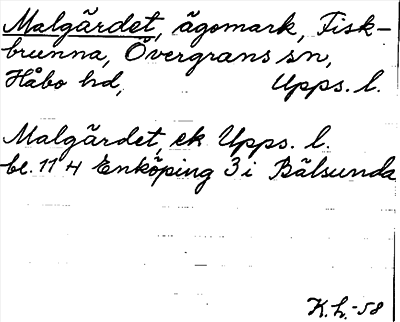 Malgärdet, ägomark, Fisk-
brunna, Övergrans sn,
Håbo hd, Upps. l.
Malgärdet, ek Upps. l.
bl. 114 Enköping 3 i Bälsunda
K.h.-58